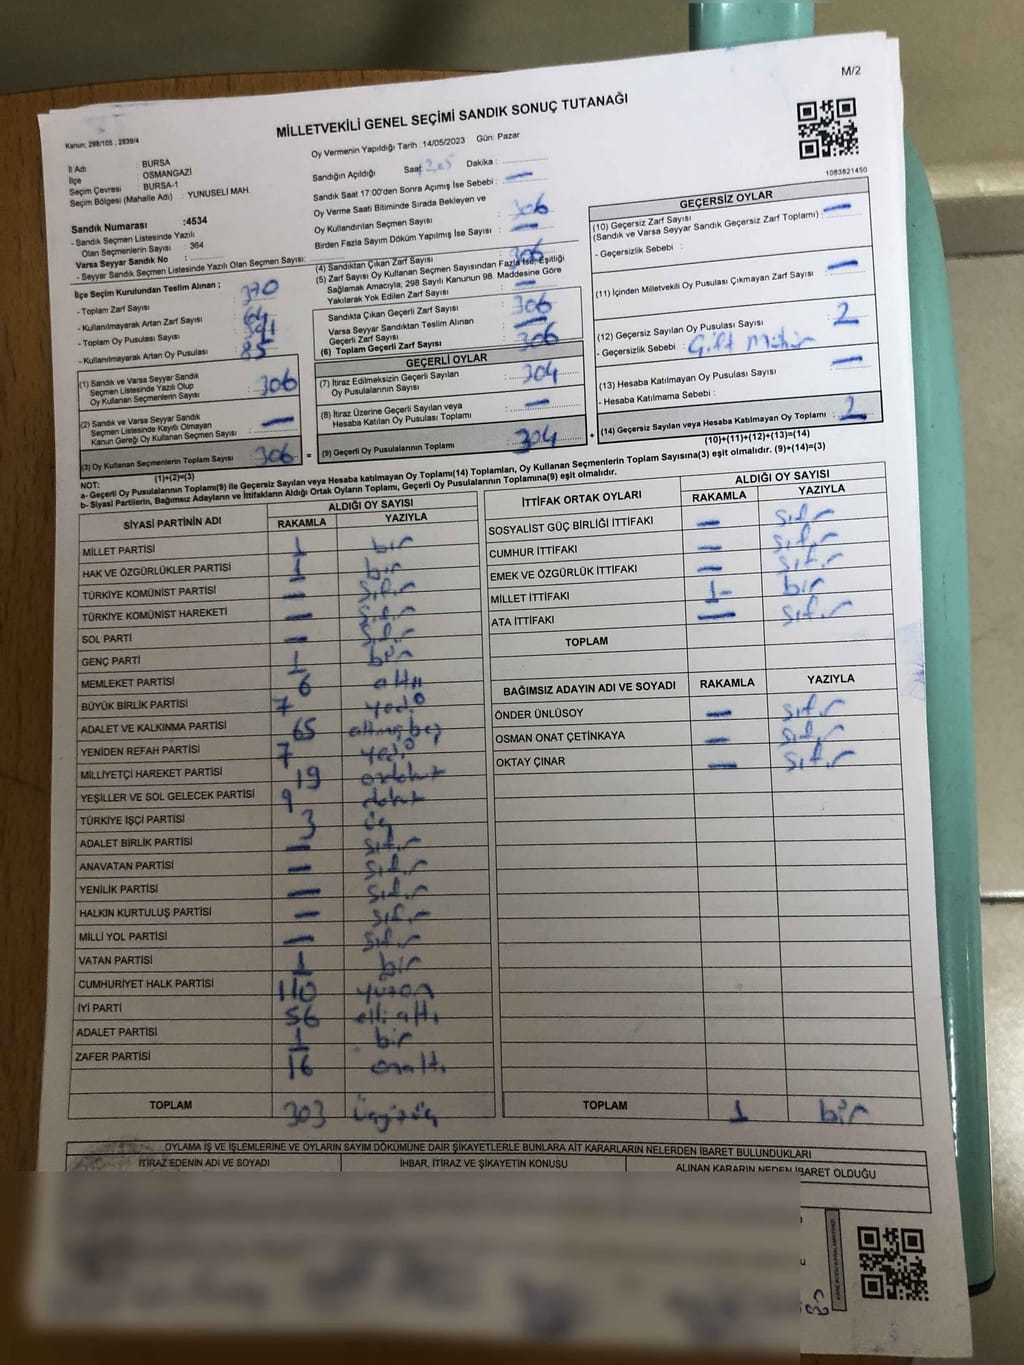 M/2
MİLLETVEKİLİ GENEL SEÇİMİ SANDIK SONUÇ TUTANAĞI
Kanun: 298/105, 2839/4
İl Adı : BURSA
İlçe : OSMANGAZİ
Seçim Çevresi : BURSA-1
Seçim Bölgesi (Mahalle Adı) : YUNUSELİ MAH.
Sandık Numarası :4534
- Sandık Seçmen Listesinde Yazılı
Olan Seçmenlerin Sayısı : 364
Varsa Seyyar Sandık No :
- Seyyar Sandık Seçmen Listesinde Yazılı Olan Seçmen Sayısı:
Oy Vermenin Yapıldığı Tarih :14/05/2023 Gün: Pazar
Sandığın Açıldığı Saat: Dakika :
Sandık Saat 17:00'den Sonra Açımış İse Sebebi : —
Oy Verme Saati Bitiminde Sırada Bekleyen ve
Oy Kullandırılan Seçmen Sayısı : 306
Birden Fazla Sayım Döküm Yapılmış İse Sayısı : —
1083821450
İlçe Seçim Kurulundan Teslim Alınan ;
- Toplam Zarf Sayısı : 370
- Kullanılmayarak Artan Zarf Sayısı : 64
- Toplam Oy Pusulası Sayısı :
- Kullanılmayarak Artan Oy Pusulası : 85
(1) Sandık ve Varsa Seyyar Sandık
Seçmen Listesinde Yazılı Olup
Oy Kullanan Seçmenlerin Sayısı : 306
(2) Sandık ve Varsa Seyyar Sandık
Seçmen Listesinde Kayıtlı Olmayan
Kanun Gereği Oy Kullanan Seçmen Sayısı : —
(3) Oy Kullanan Seçmenlerin Toplam Sayısı : 306
(1)+(2)=(3)
(4) Sandıktan Çıkan Zarf Sayısı : 306
(5) Zarf Sayısı Oy Kullanan Seçmen Sayısından Fazla İse, Eşitliği
Sağlamak Amacıyla; 298 Sayılı Kanunun 98. Maddesine Göre
Yakılarak Yok Edilen Zarf Sayısı : —
Sandıkta Çıkan Geçerli Zarf Sayısı : 306
Varsa Seyyar Sandıktan Teslim Alınan
Geçerli Zarf Sayısı : —
(6) Toplam Geçerli Zarf Sayısı : 306
GEÇERLİ OYLAR
(7) İtiraz Edilmeksizin Geçerli Sayılan
Oy Pusulalarının Sayısı : 304
(8) İtiraz Üzerine Geçerli Sayılan veya
Hesaba Katılan Oy Pusulası Toplamı : —
(9) Geçerli Oy Pusulalarının Toplamı : 304
GEÇERSİZ OYLAR
(10) Geçersiz Zarf Sayısı
(Sandık ve Varsa Seyyar Sandık Geçersiz Zarf Toplamı) : —
- Geçersizlik Sebebi :
(11) İçinden Milletvekili Oy Pusulası Çıkmayan Zarf Sayısı : —
(12) Geçersiz Sayılan Oy Pusulası Sayısı : 2
- Geçersizlik Sebebi : Çift Mühür
(13) Hesaba Katılmayan Oy Pusulası Sayısı : —
- Hesaba Katılmama Sebebi :
(14) Geçersiz Sayılan veya Hesaba Katılmayan Oy Toplamı : 2
(10)+(11)+(12)+(13)=(14)
NOT:
a- Geçerli Oy Pusulalarının Toplamı(9) ile Geçersiz Sayılan veya Hesaba katılmayan Oy Toplamı(14) Toplamları, Oy Kullanan Seçmenlerin Toplam Sayısına(3) eşit olmalıdır. (9)+(14)=(3)
b- Siyasi Partilerin, Bağımsız Adayların ve İttifakların Aldığı Ortak Oyların Toplamı, Geçerli Oy Pusulalarının Toplamına(9) eşit olmalıdır.
SİYASİ PARTİNİN ADI ALDIĞI OY SAYISI
RAKAMLA YAZIYLA
MİLLET PARTİSİ 1 bir
HAK VE ÖZGÜRLÜKLER PARTİSİ 1 bir
TÜRKİYE KOMÜNİST PARTİSİ — sıfır
TÜRKİYE KOMÜNİST HAREKETİ — sıfır
SOL PARTİ — sıfır
GENÇ PARTİ 1 bir
MEMLEKET PARTİSİ 6 altı
BÜYÜK BİRLİK PARTİSİ 7 yedi
ADALET VE KALKINMA PARTİSİ 65 altmışbeş
YENİDEN REFAH PARTİSİ 7 yedi
MİLLİYETÇİ HAREKET PARTİSİ 19 ondokuz
YEŞİLLER VE SOL GELECEK PARTİSİ 9 dokuz
TÜRKİYE İŞÇİ PARTİSİ 3 üç
ADALET BİRLİK PARTİSİ — sıfır
ANAVATAN PARTİSİ — sıfır
YENİLİK PARTİSİ — sıfır
HALKIN KURTULUŞ PARTİSİ — sıfır
MİLLİ YOL PARTİSİ — sıfır
VATAN PARTİSİ 1 bir
CUMHURİYET HALK PARTİSİ 110 yüzon
İYİ PARTİ 56 elli altı
ADALET PARTİSİ 1 bir
ZAFER PARTİSİ 16 onaltı
TOPLAM 303 üçyüzüç
İTTİFAK ORTAK OYLARI ALDIĞI OY SAYISI
RAKAMLA YAZIYLA
SOSYALİST GÜÇ BİRLİĞİ İTTİFAKI — sıfır
CUMHUR İTTİFAKI — sıfır
EMEK VE ÖZGÜRLÜK İTTİFAKI — sıfır
MİLLET İTTİFAKI 1 bir
ATA İTTİFAKI — sıfır
TOPLAM
BAĞIMSIZ ADAYIN ADI VE SOYADI RAKAMLA YAZIYLA
ÖNDER ÜNLÜSOY — sıfır
OSMAN ONAT ÇETİNKAYA — sıfır
OKTAY ÇINAR — sıfır
TOPLAM 1 bir
OYLAMA İŞ VE İŞLEMLERİNE VE OYLARIN SAYIM DÖKÜMÜNE DAİR ŞİKAYETLERLE BUNLARA AİT KARARLARIN NELERDEN İBARET BULUNDUKLARI
İTİRAZ EDENİN ADI VE SOYADI İHBAR, İTİRAZ VE ŞİKAYETİN KONUSU ALINAN KARARIN NEDEN İBARET OLDUĞU